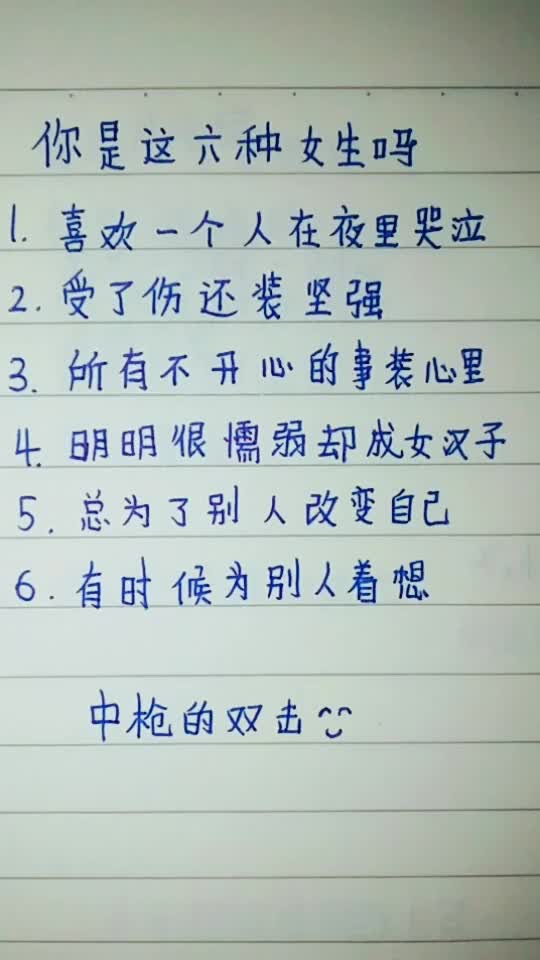 你是这六种女生吗
1. 喜欢一个人在夜里哭泣
2. 受了伤还装坚强
3. 所有不开心的事装心里
4. 明明很懦弱却成女汉子
5. 总为了别人改变自己
6. 有时候为别人着想
中枪的双击